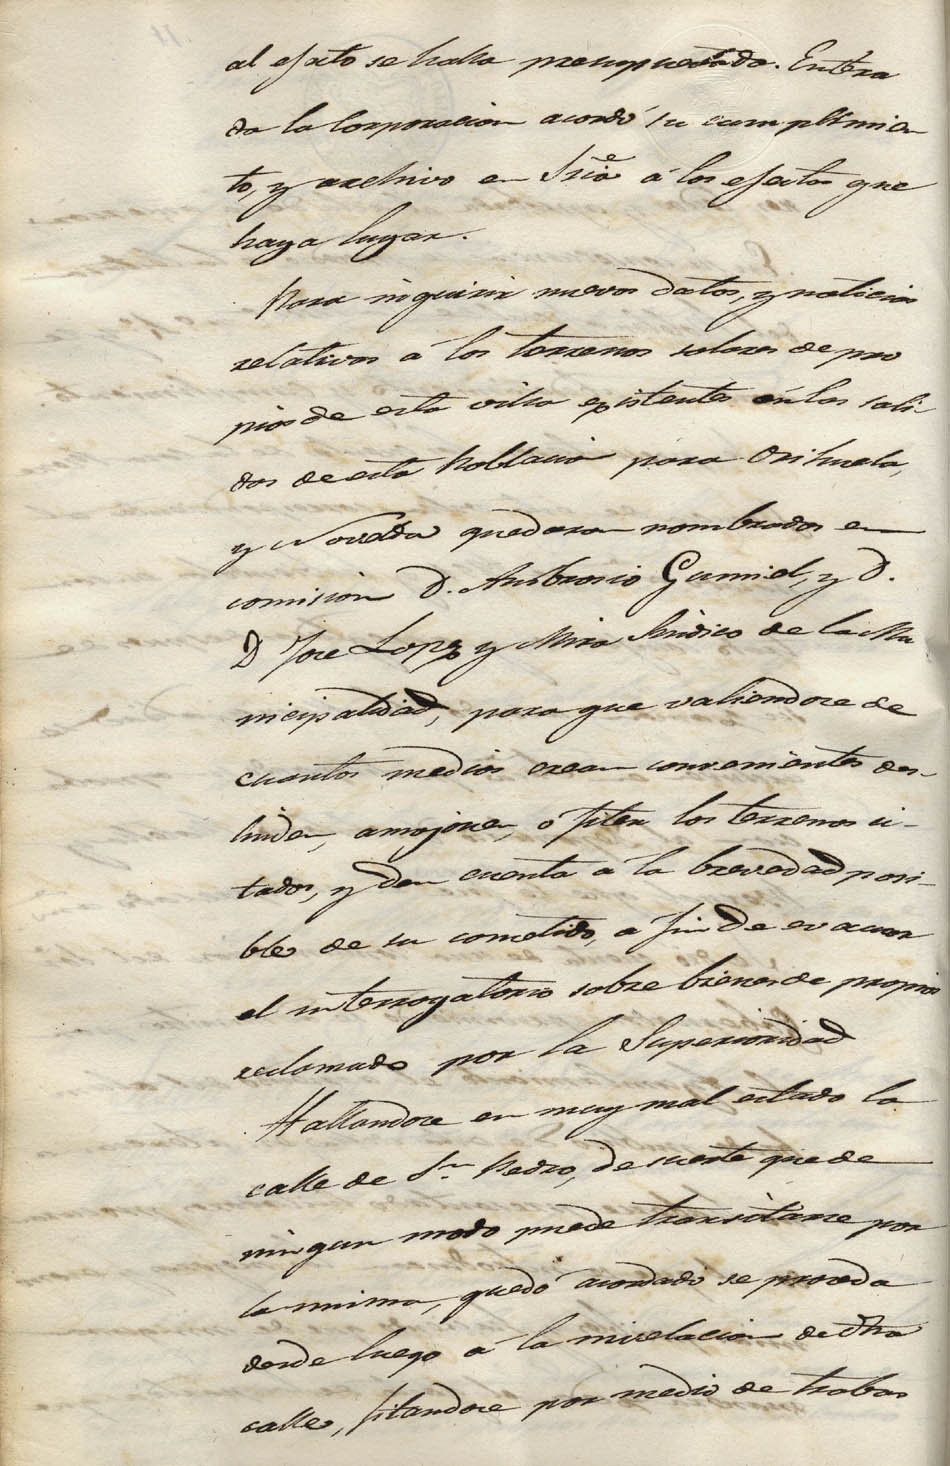 al efecto se halla presupuestada. Entera
da la Corporacion acordó su cumplimien
to, y archivo en Sria á los efectos que
haya lugar.
Para inquirir nuevos datos, y noticias
relativos a los terrenos solares de pro
pios de esta villa existentes en las sali-
das de esta Poblacion para Orihuela,
y Novelda quedaron nombrados en
comision D. Ambrosio Gumiel, y D.
D Jose Lopez y Mira Sindico de la Mu
nicipalidad, para que valiendose de
cuantos medios crean convenientes des-
linden, amojonen, o fiten los terrenos ci-
tados, y den cuenta a la brevedad posi-
ble de su cometido, a fin de evacuar
el interrogatorio sobre bienes de propios
reclamado por la Superioridad
Hallandose en muy mal estado la
calle de Sn Pedro, de suerte que de
ningun modo puede transitarse por
la misma, quedó acordado se proceda
desde luego á la nivelacion de dha
calle, fitandose por medio de trabas